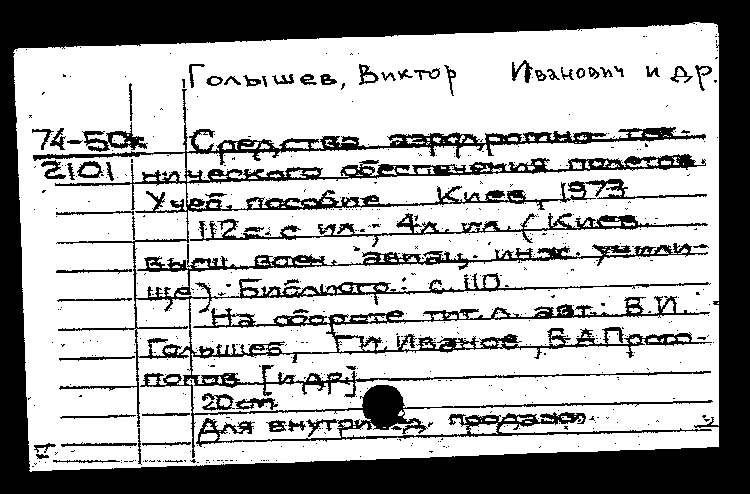 Голышев, Виктор Иванович и др.
74-50к Средства аэродромно-тех-
2101 нического обеспечения полетов.
Учеб. пособие Киев, 1973
112 с. с ил.; 4 л. ил. (Киев.
высш. воен. авиац. инж. учили-
ще). Библиогр.: с. 110.
На обороте тит. л. авт.: В.И.
Голышев, Г.И. Иванов, Б.А Прото-
попов [и др.]
20 cm
Для внутривед. продажи.